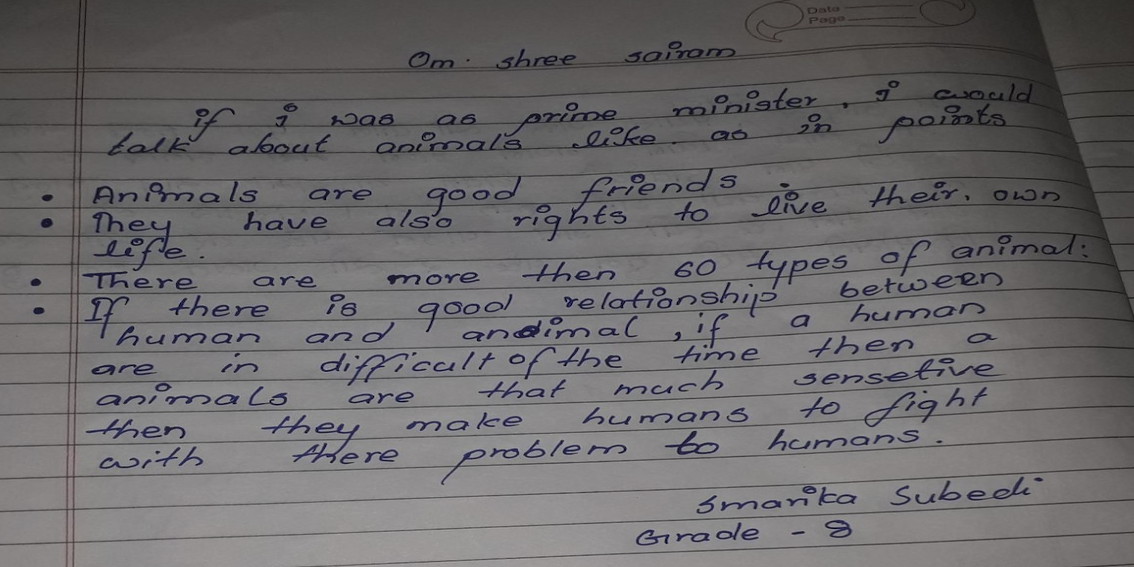 Data
Page
Om. shree sairam
if i was as prime minister, I would
talk about animals like. as in points
• Animals are good friends
• They have also rights to live their, own
life.
• There are more then 60 types of animal:
• If there is good relationship between
human and andimal, if a human
are in difficult of the time then a
animals are that much sensetive
then they make humans to fight
with there problem to humans.
Smarika Subedi
Grade - 8